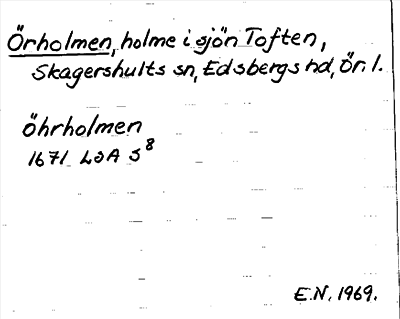 Örholmen, holme i sjön Toften,
Skagershults sn, Edsbergs hd, Ör. l.
Öhrholmen
1671 LSA S⁸
E.N. 1969.